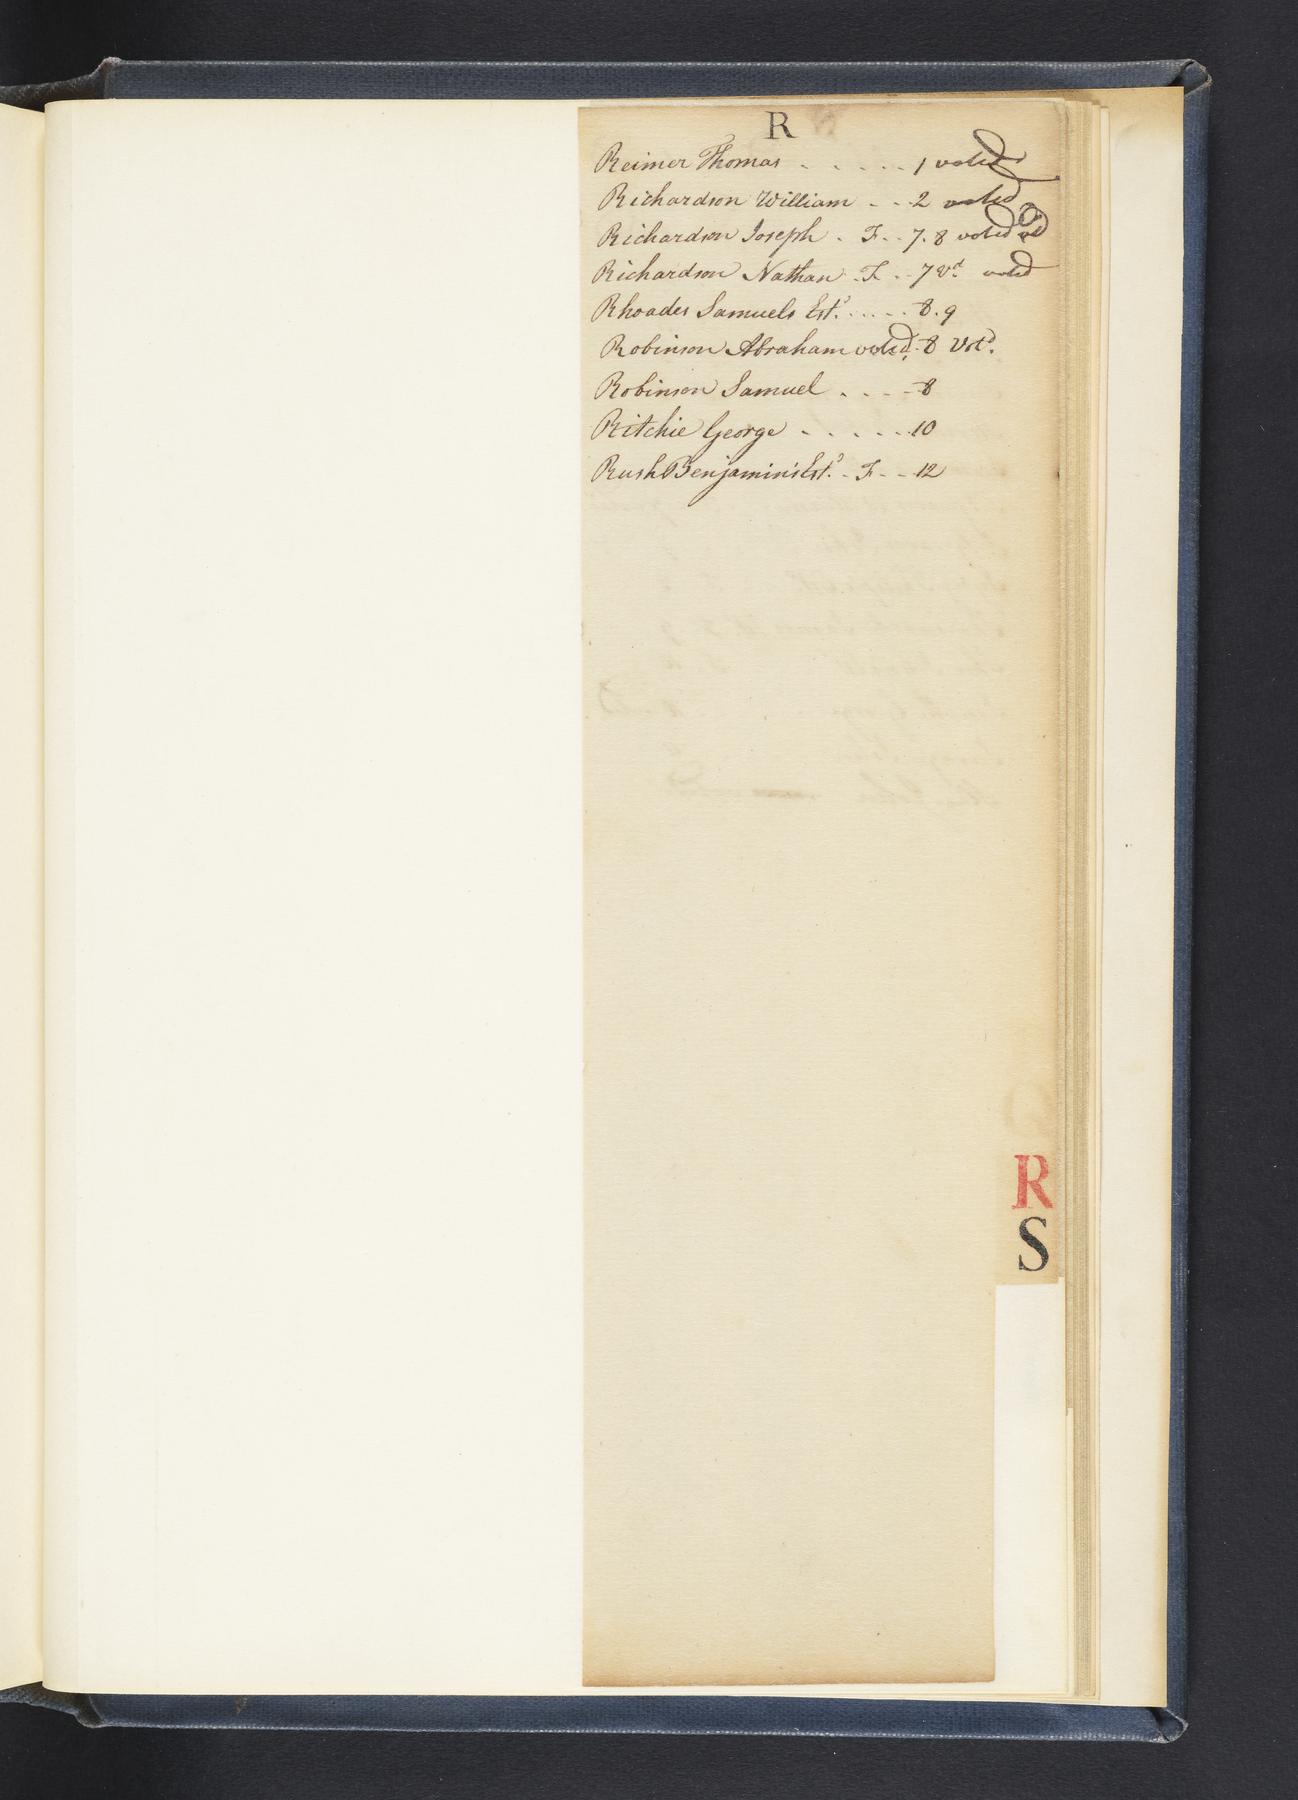 R
Reimer Thomas . . . . . . 1 voted
Richardson William . . . 2 voted
Richardson Joseph . F. . 7. 8 voted vd
Richardson Nathan . F. . 7 Vd. voted
Rhoades Samuels Ests. . . . . . 8. 9
Robinson Abraham voted. 8 Votd.
Robinson Samuel . . . . 8
Ritchie George . . . . . . 10
Rush Benjamin's Ests. . F. . . 12
R
S